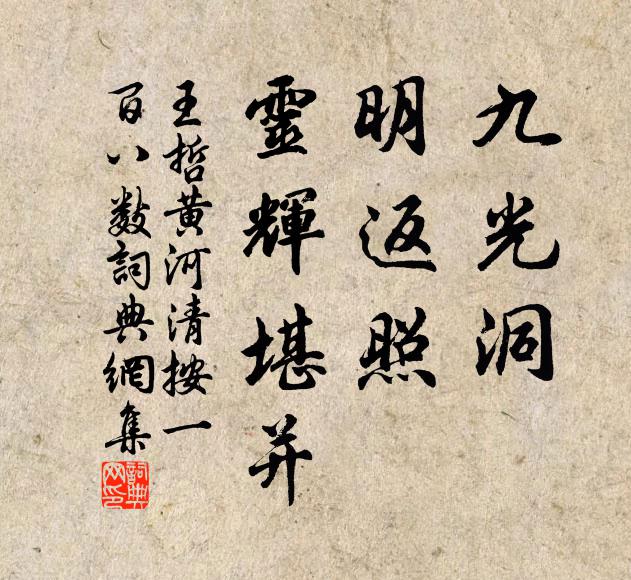 九光洞
明返照
靈輝堪并
王哲黄河清按一
百八數詞典網集
詞典
网印